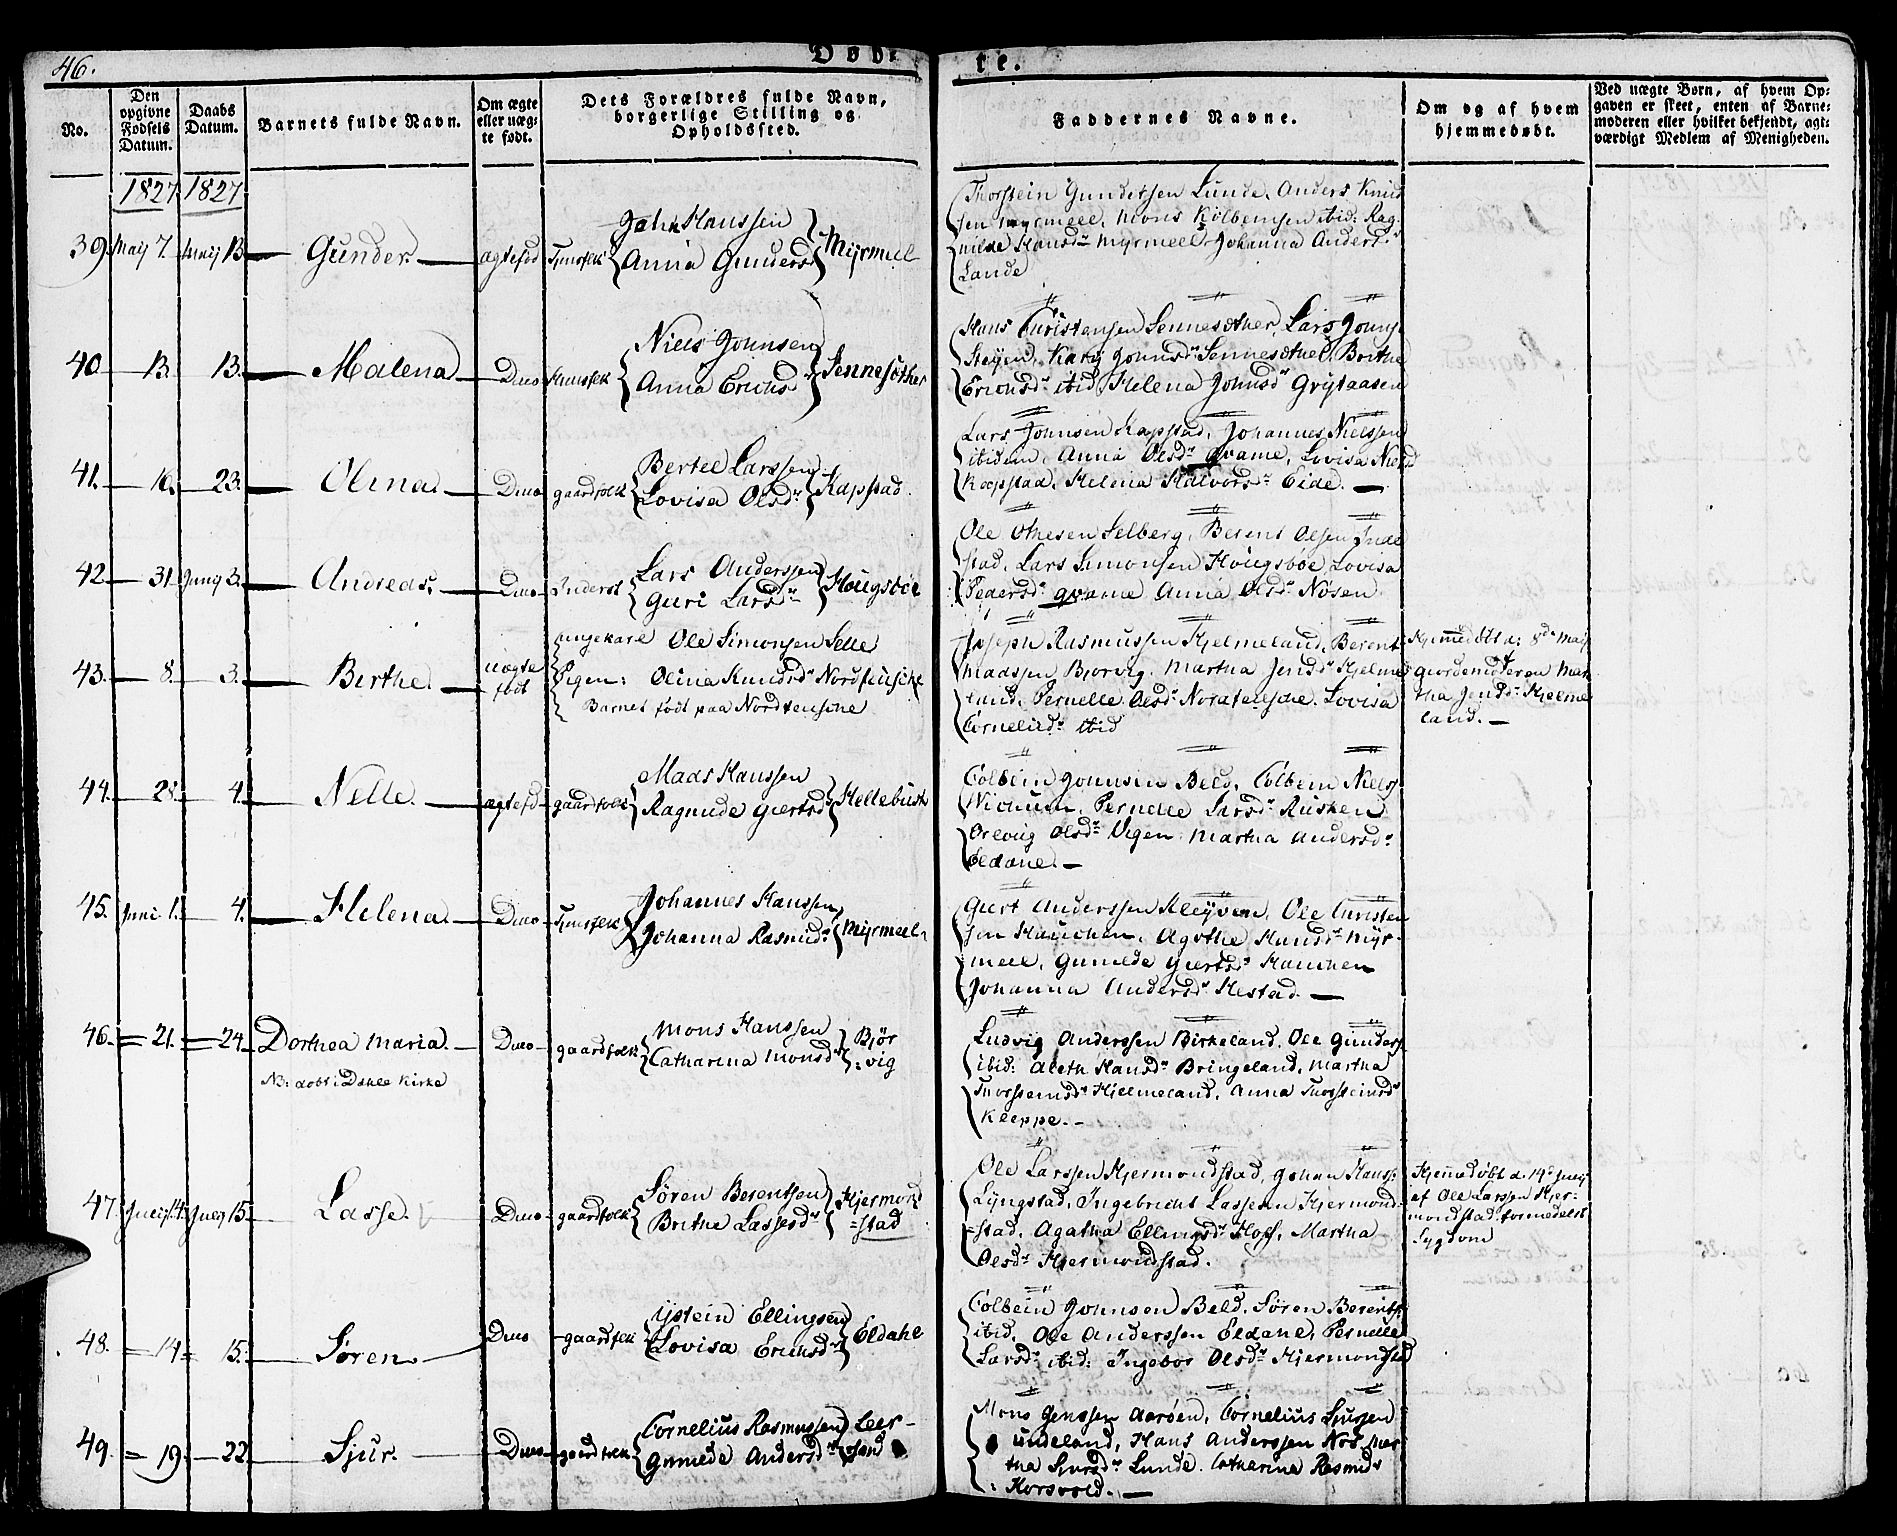 46.
Døbte.
No.
Den opgivne Fødsels Datum.
Daabs Datum.
Barnets fulde Navn.
Om ægte eller uægte født.
Dets Forældres fulde Navn, borgerlige Stilling og Opholdssted.
Faddernes Navne.
Om og af hvem hjemmedøbt.
Ved uægte Børn, af hvem Opgaven er skeet, enten af Barnemoderen eller hvilket bekjendt, agtværdigt Medlem af Menigheden.
1827 1827
39. Maij 7. Maij 13 Gunder. ægtefød
John Hanssen
Anna Gundersd
Myrmeel
Thorstein Gundersen Lunde, Anders Knud
sen Myrmeel, Mons Kolbeinsen ibid: Rag
nilde Hansdr Myrmeel, Johanna Andersdr
Lande
40. 13. 13. Malena Duo Huusfolk
Niels Johnsen
Anna Erichsd
Sennesøther
Hans Christensen Sennesøther, Lars Johns
Steyen, Kary Johnsdr Sennesøther, Brithe
Erichsdr ibid, Helena Johnsdr Grytaasen
41. 16. 23. Olina Duo gaardfolk
Bertel Larssen
Lovisa Olsdr
Kapstad.
Lars Johnsen Kapstad, Johannes Nielssen
ibidem, Anna Olsdr Qvame, Lovisa Nielsd
Kapstad, Helena Halvorsdr Eide.
42. 31. Juny 3. Andreas. Duo Inderst
Lars Anderssen
Guri Larsdr
Hougsbøe
Ole Othesen Selberg, Berent Olsen Inde
stad, Lars Simonsen Hougsbøe, Lovisa
Pedersdr Qvame Anna Olsdr Nøsen
43. 8. 3. Birthe uægte født
ungekarl Ole Simonsen Selle
Pigen: Olina Knudsdr Nordtensche
Barnet født paa Nordtensche
Joseph Rasmussen Hjelmeland, Berent
Madssen Bjorvig, Martha Jensdr Hjelme
land, Pernelle Olsdr Nordtensche, Lovisa
Corneliidr ibid
Hjemmedøbt d: 8d Maij
Giordemoderen Mar
tha Jensdr Hjelme
land.
44. 28. 4. Nelle. ægtefd gaardfolk
Mads Hanssen
Ragnilde Giertsd
Hellebust
Colbein Johnsen Beld, Colbein Niels
Pernelle Larsdr Rusken
Olsdr Vegen, Martha Andersdr
Eldane.
45. Juni 1. 4. Helena. Duo Huusfolk
Johannes Hanssen
Johanna Rasmidr
Myrmeel
Giert Anderssen Kleyven, Ole Christen
sen Hauchen, Agothe Hansdr Myr
meel, Gunilde Giertsdr Hauchen
Johanna Andersdr Hestad.
46. 21. 24. Dorthea Maria. Duo gaardfolk
NB: døbt i Dahle Kirke
Mons Hanssen
Catharina Monsdr
Bjør
vig
Ludvig Anderssen Birkeland, Ole Gunders
ibid: Aleth Hansdr Bringeland, Martha
Thorsteinsdr Hjelmeland, Anna Thorsteinsd
Kleppe.
47. Juny 14. July 15. Lasse. Duo gaardfolk
Søren Berentsen
Brithe Lassesdr
Hjermond
stad
Ole Larssen Hjermondstad, Johan Hanss
Lyngstad, Ingebricht Lassesen Hjermond
stad, Agatha Ellingsdr Hoff, Martha
Olsdr Hjermondstad.
Hjemmedøbt d. 14d Juny
af Ole Larssen Hjer-
mondstad formedelst
Sygdom
48. 14 15. Søren Duo gaardfolk
Østein Ellingsen
Lovisa Erichsdr
Eldahl
Colbein Johnsen Beld, Søren Berents
ibid, Ole Anderssen Eldane, Pernelle
Larsdr ibid: Ingebor Olsdr Hjermondstad
49. 19. 22. Sjur. Duo gaardfolk
Cornelius Rasmussen
Gunilde Andersdr
Leer-
sand
Mons Jenssen Aarøen, Cornelius Siursen
Undeland, Hans Anderssen Mar
tha Siursdr Lunde, Catharina Rasmidr
Horsvold.